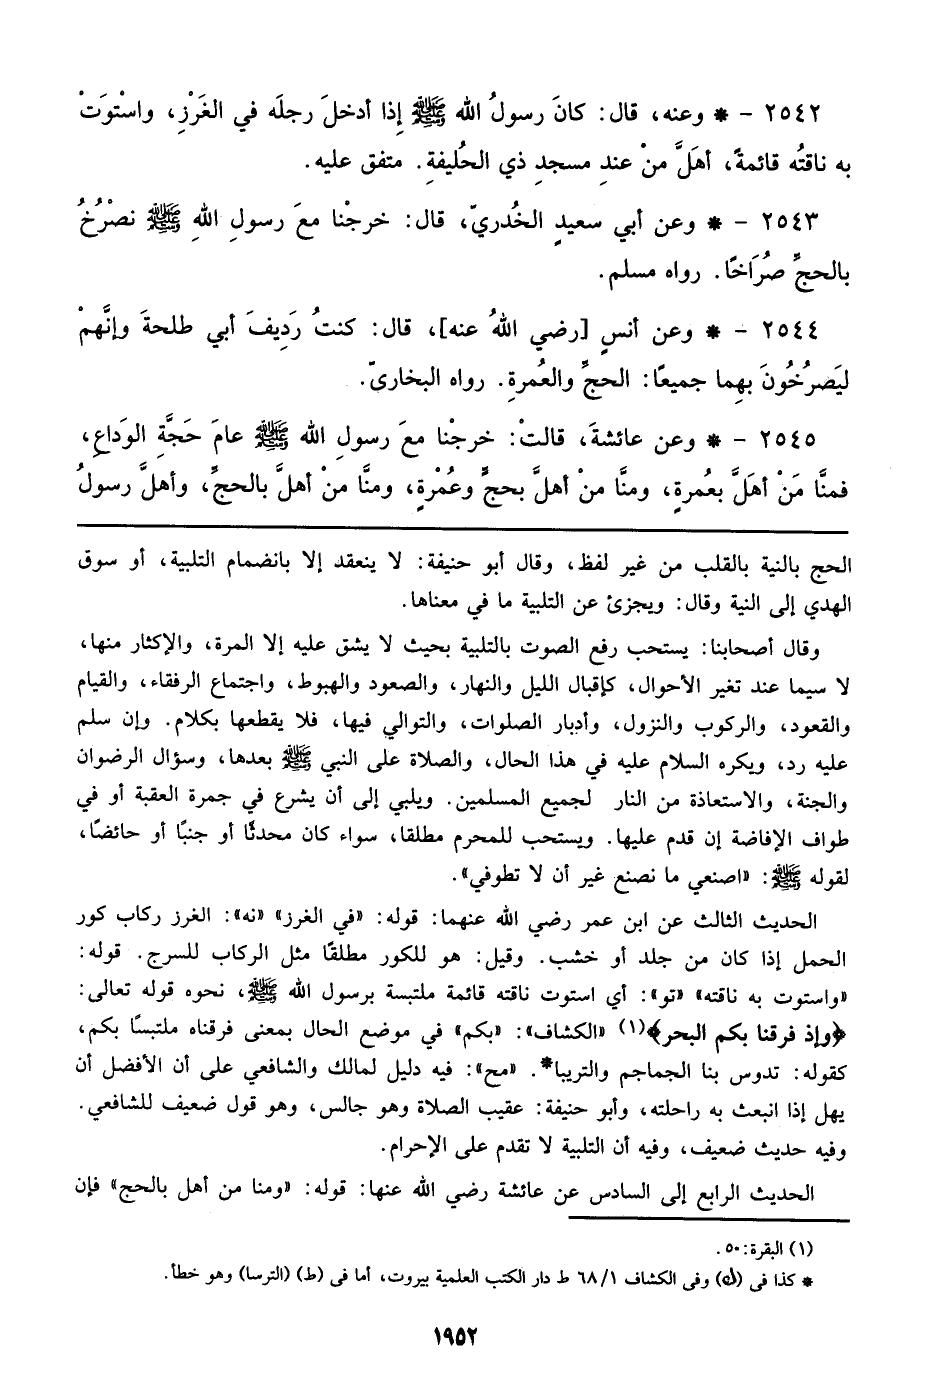 ٢٥٤٢ – * وعنه، قال: كانَ رسولُ الله ﷺ إذا أدخلَ رجلَه في الغَرْزِ، واستْوَتْ
به ناقتُه قائمةً، أهَلَّ منْ عندِ مسجدِ ذي الحُليفةِ. متفق عليه.
٢٥٤٣ – * وعن أبي سعيدٍ الخُدريّ، قال: خرجْنا معَ رسولِ اللهِ ﷺ نصْرُخُ
بالحجِّ صُرَاخًا. رواه مسلم.
٢٥٤٤ – * وعن أنسٍ [رضي اللهُ عنه]، قال: كنتُ رَدِيفَ أبي طلحةَ وإنَّهمْ
ليَصرُخُونَ بِهِما جميعًا: الحجِّ والعُمرةِ. رواه البخارىّ.
٢٥٤٥ – * وعن عائشةَ، قالتْ: خرجْنا معَ رسولِ الله ﷺ عامَ حَجَّةِ الوَداعِ،
فمنَّا مَنْ أهَلَّ بعُمرةٍ، ومنَّا منْ أهلَّ بحجٍّ وعُمْرةٍ، ومنَّا منْ أهلَّ بالحجِّ، وأهلَّ رسولُ
الحج بالنية بالقلب من غير لفظ، وقال أبو حنيفة: لا ينعقد إلا بانضمام التلبية، أو سوق
الهدي إلى النية وقال: ويجزئ عن التلبية ما في معناها.
وقال أصحابنا: يستحب رفع الصوت بالتلبية بحيث لا يشق عليه إلا المرة، والإكثار منها،
لا سيما عند تغير الأحوال، كإقبال الليل والنهار، والصعود والهبوط، واجتماع الرفقاء، والقيام
والقعود، والركوب والنزول، وأدبار الصلوات، والتوالي فيها، فلا يقطعها بكلام. وإن سلم
عليه رد، ويكره السلام عليه في هذا الحال، والصلاة على النبي ﷺ بعدها، وسؤال الرضوان
والجنة، والاستعاذة من النار لجميع المسلمين. ويلبي إلى أن يشرع في جمرة العقبة أو في
طواف الإفاضة إن قدم عليها. ويستحب للمحرم مطلقا، سواء كان محدثًا أو جنبًا أو حائضًا،
لقوله ﷺ: «اصنعي ما نصنع غير أن لا تطوفي».
الحديث الثالث عن ابن عمر رضي الله عنهما: قوله: «في الغرز» «نه»: الغرز ركاب كور
الحمل إذا كان من جلد أو خشب. وقيل: هو للكور مطلقًا مثل الركاب للسرج. قوله:
«واستوت به ناقته» «تو»: أي استوت ناقته قائمة ملتبسة برسول الله ﷺ، نحوه قوله تعالى:
﴿وإذ فرقنا بكم البحر﴾(١) «الكشاف»: «بكم» في موضع الحال بمعنى فرقناه ملتبسًا بكم،
كقوله: تدوس بنا الجماجم والتريبا*. «مح»: فيه دليل لمالك والشافعي على أن الأفضل أن
يهل إذا انبعث به راحلته، وأبو حنيفة: عقيب الصلاة وهو جالس، وهو قول ضعيف للشافعي.
وفيه حديث ضعيف، وفيه أن التلبية لا تقدم على الإحرام.
الحديث الرابع إلى السادس عن عائشة رضي الله عنها: قوله: «ومنا من أهل بالحج» فإن
(١) البقرة: ٥٠.
* كذا فى (ك) وفى الكشاف ٦٨/١ ط دار الكتب العلمية بيروت، أما فى (ط) (الترسا) وهو خطأ.
١٩٥٢